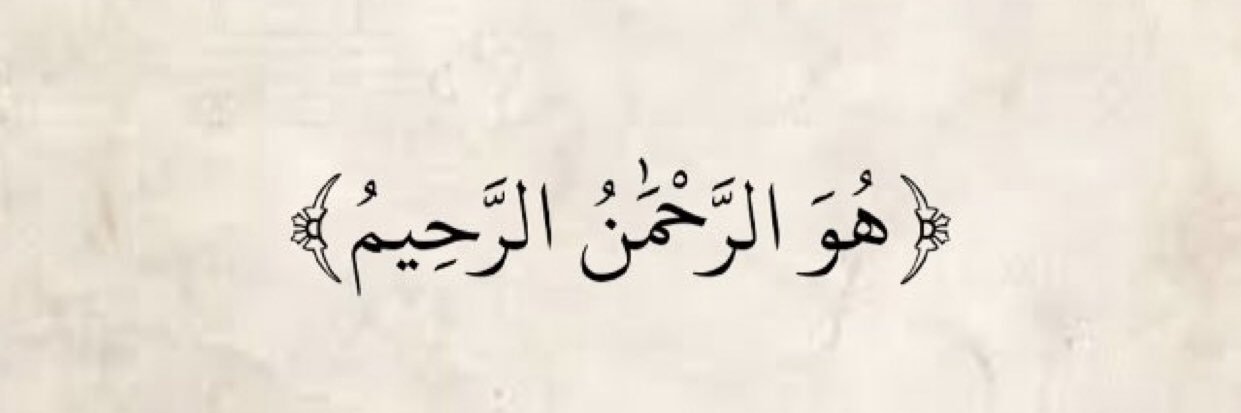 ﴿هُوَ الرَّحْمَٰنُ الرَّحِيمُ﴾